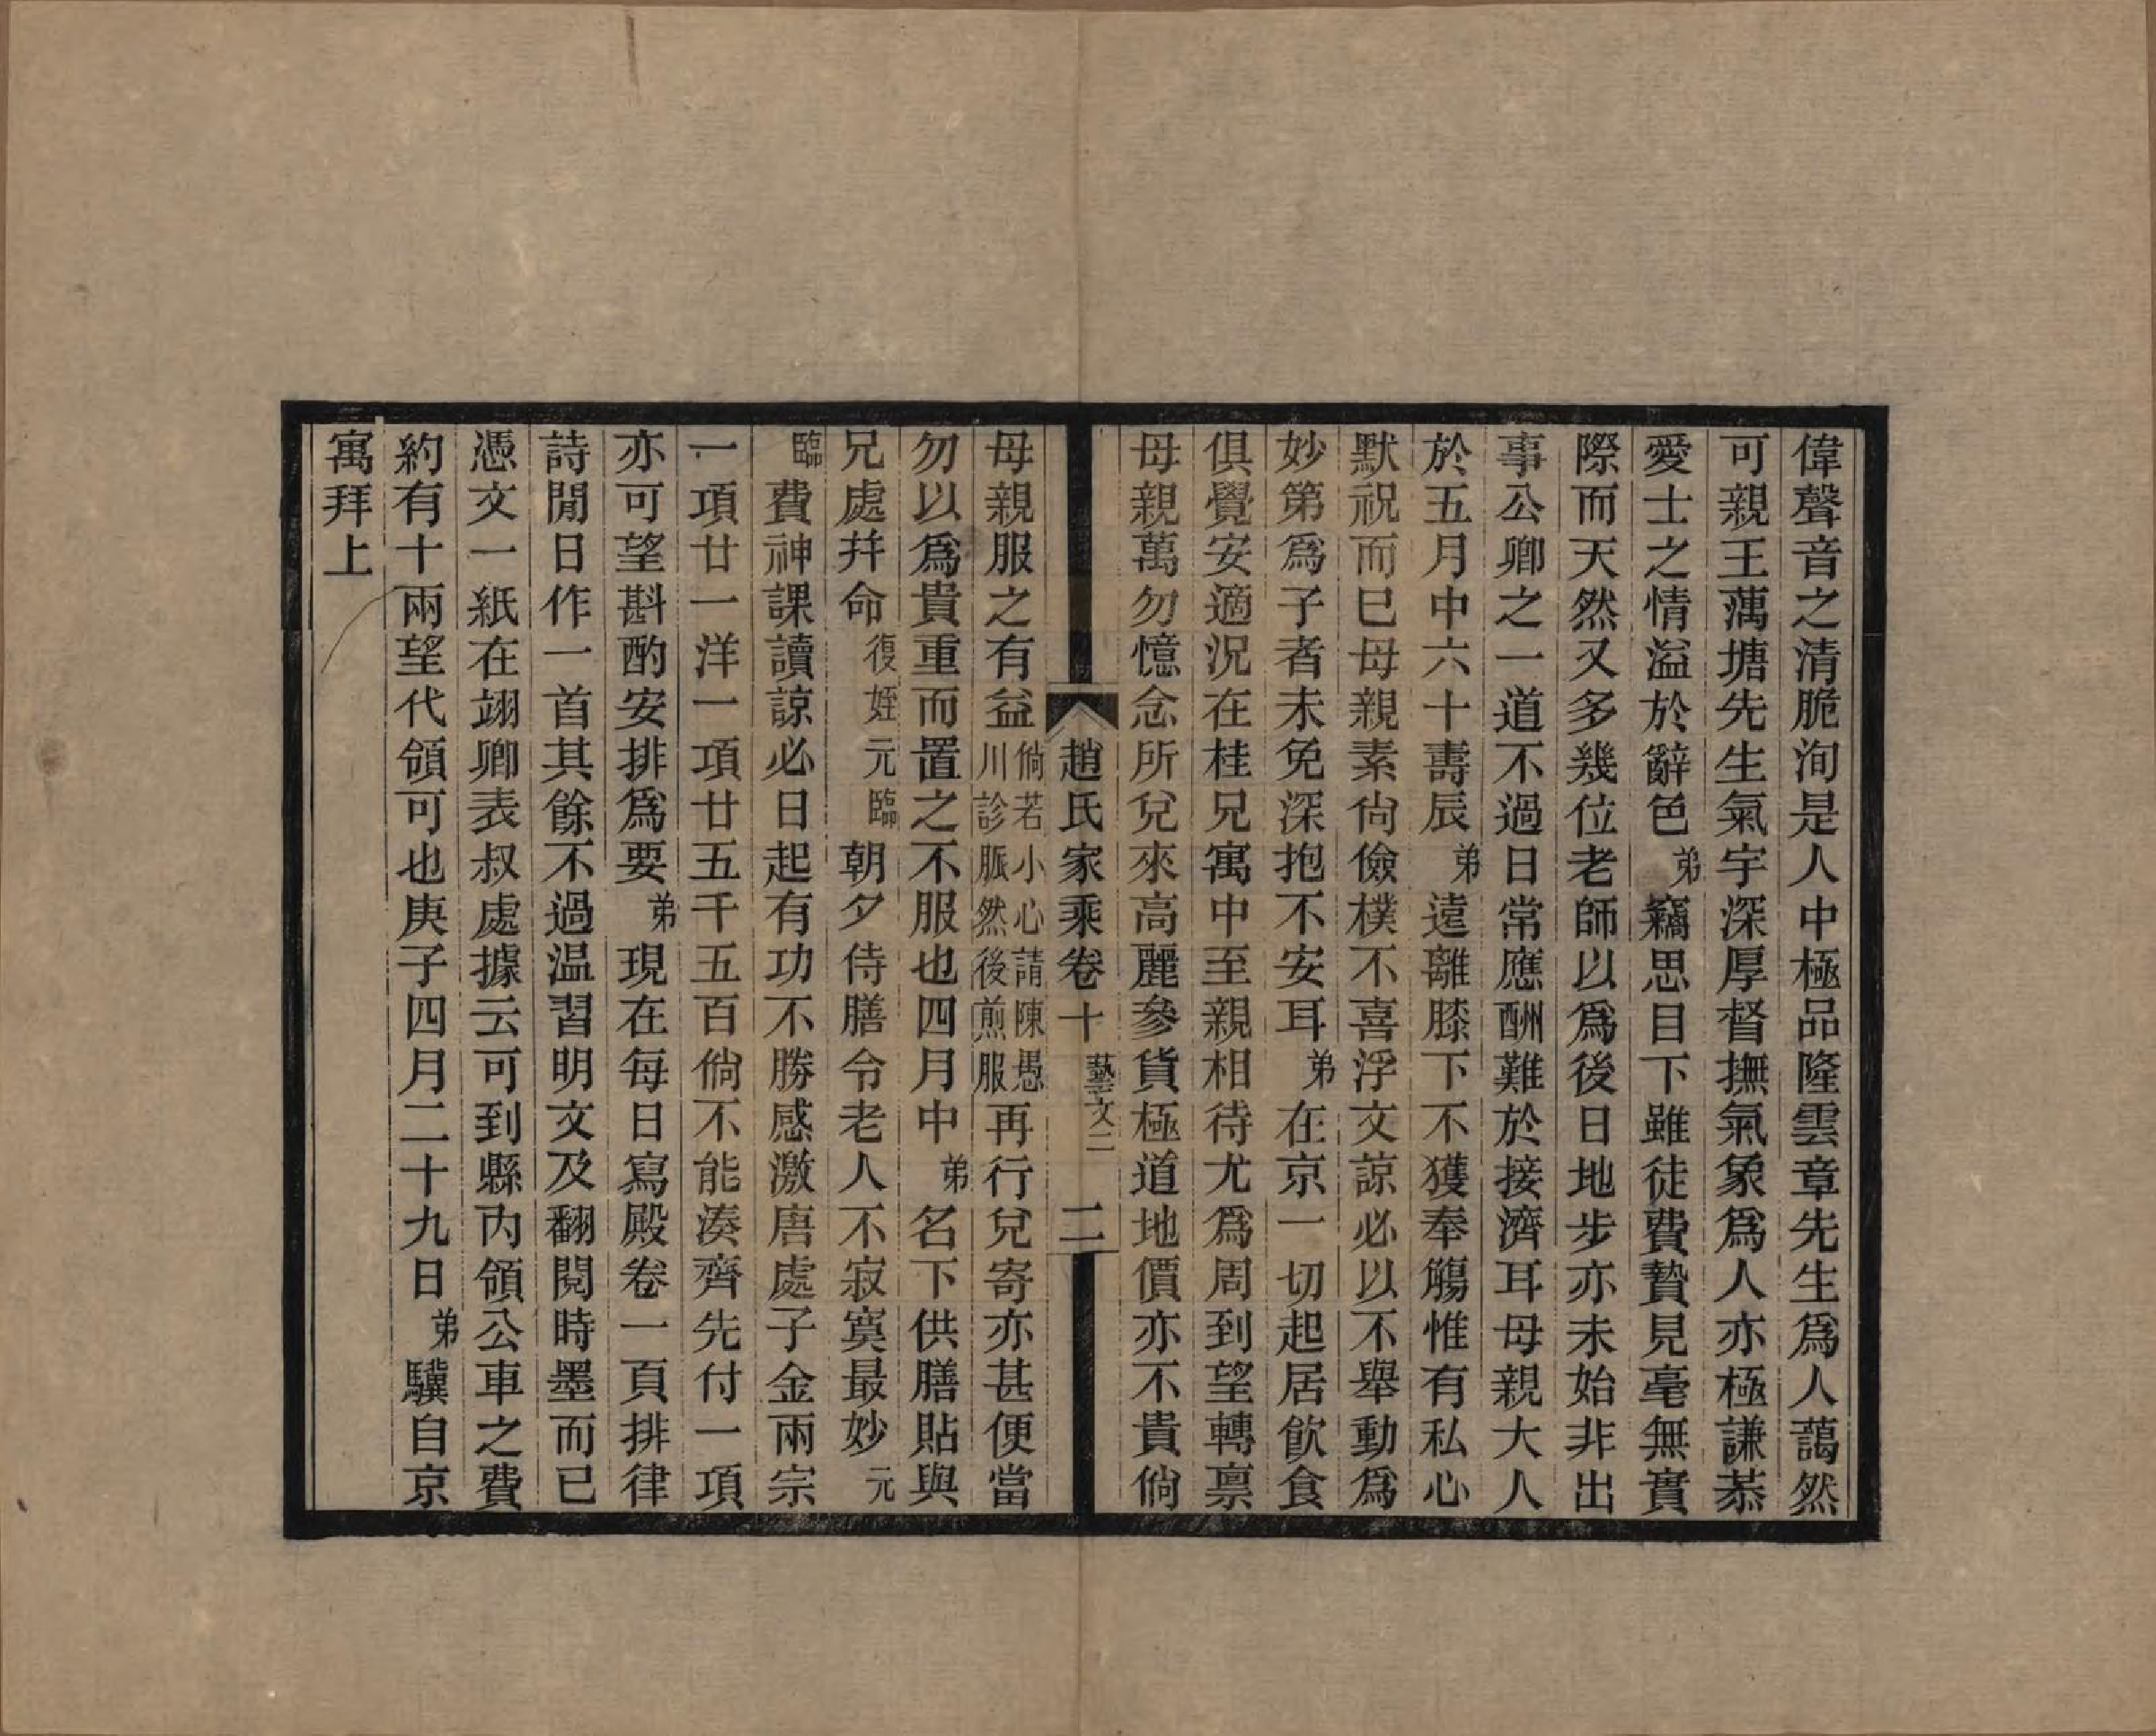 偉聲音之清脆洵是人中極品隆雲章先生爲人藹然
可親王藕塘先生氣宇深厚督撫氣象爲人亦極謙恭
愛士之情溢於辭色弟竊思目下雖徒費贄見毫無實
際而天然又多幾位老師以爲後日地步亦未始非出
事公卿之一道不過日常應酬難於接濟耳母親大人
於五月中六十壽辰弟遠離膝下不獲奉觴惟有私心
默祝而已母親素尙儉樸不喜浮文諒必以不舉動爲
妙第爲子者未免深抱不安耳弟在京一切起居飮食
俱覺安適況在桂兄寓中至親相待尤爲周到望轉禀
母親萬勿憶念所兌來高麗參貨極道地價亦不貴倘
趙氏家乘卷十 藝文二 二
母親服之有益倘若小心請陳愚川診脈然後煎服再行兌寄亦甚便當
勿以爲貴重而置之不服也四月中弟名下供膳貼與
兄處幷命復姪元臨朝夕侍膳令老人不寂寞最妙元
臨費神課讀諒必日起有功不勝感激唐處子金兩宗
一項廿一洋一項廿五千五百倘不能湊齊先付一項
亦可望斟酌安排爲要弟現在每日寫殿卷一頁排律
詩閒日作一首其餘不過温習明文及翻閱時墨而已
憑文一紙在翊卿表叔處據云可到縣內領公車之費
約有十兩望代領可也庚子四月二十九日弟驥自京
寓拜上